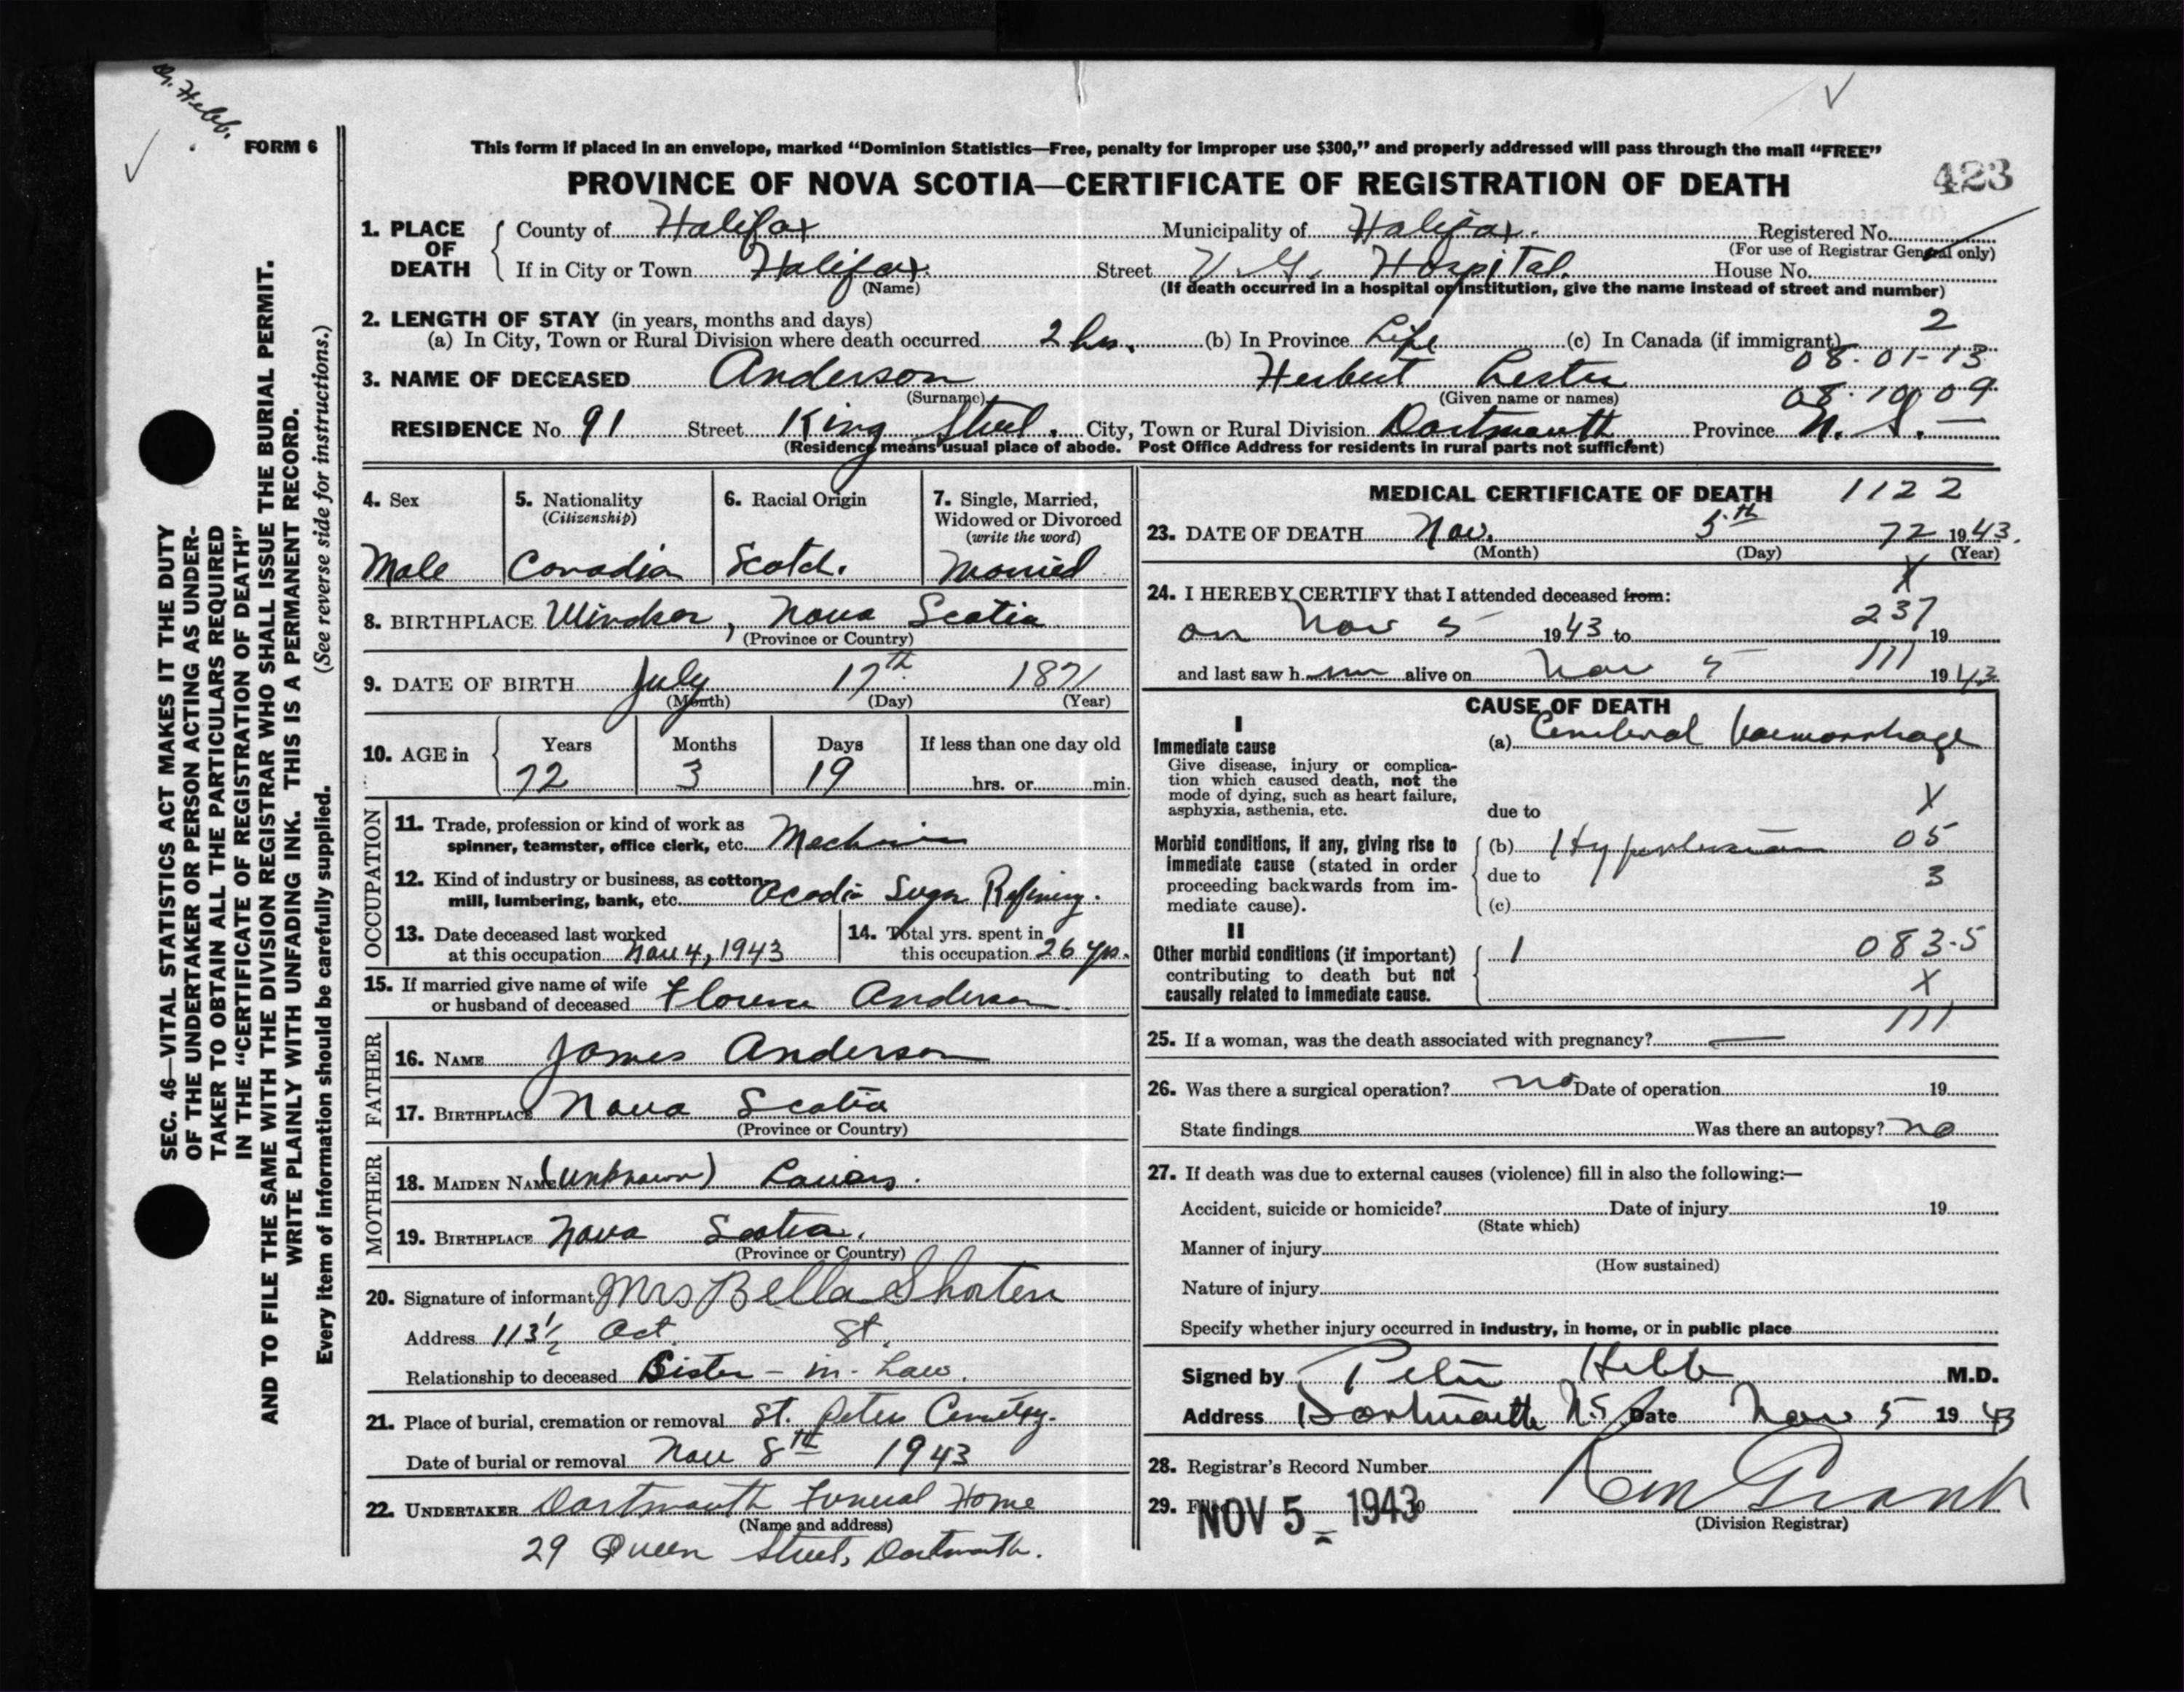 Dr. Hebb.
FORM 6
This form if placed in an envelope, marked “Dominion Statistics—Free, penalty for improper use $300,” and properly addressed will pass through the mail “FREE”
PROVINCE OF NOVA SCOTIA—CERTIFICATE OF REGISTRATION OF DEATH
423
1. PLACE OF DEATH
County of Halifax Municipality of Halifax. Registered No.
(For use of Registrar General only)
If in City or Town Halifax. Street V. G. Hospital. House No.
(Name) (If death occurred in a hospital or institution, give the name instead of street and number)
2. LENGTH OF STAY (in years, months and days)
(a) In City, Town or Rural Division where death occurred 2 hrs. (b) In Province Life (c) In Canada (if immigrant) 2
08-01-13
3. NAME OF DECEASED Anderson Herbert Lester
(Surname) (Given name or names) 08-10-09
RESIDENCE No. 91 Street King Street. City, Town or Rural Division Dartmouth Province N. S. —
(Residence means usual place of abode. Post Office Address for residents in rural parts not sufficient)
4. Sex
Male
5. Nationality
(Citizenship)
Canadian
6. Racial Origin
Scotch.
7. Single, Married,
Widowed or Divorced
(write the word)
Married
8. BIRTHPLACE Windsor, Nova Scotia
(Province or Country)
9. DATE OF BIRTH July 17th 1871
(Month) (Day) (Year)
10. AGE in
Years Months Days If less than one day old
72 3 19 hrs. or min.
OCCUPATION
11. Trade, profession or kind of work as
spinner, teamster, office clerk, etc. Mechanic
12. Kind of industry or business, as cotton
mill, lumbering, bank, etc. Acadia Sugar Refining.
13. Date deceased last worked
at this occupation Nov 4, 1943
14. Total yrs. spent in
this occupation 26 yrs.
15. If married give name of wife
or husband of deceased Florence Anderson
FATHER
16. NAME James Anderson
17. BIRTHPLACE Nova Scotia
(Province or Country)
MOTHER
18. MAIDEN NAME (Unknown)
19. BIRTHPLACE Nova Scotia.
(Province or Country)
20. Signature of informant Mrs Bella Shorten
Address 113½ Oct. St.
Relationship to deceased Sister-in-Law.
21. Place of burial, cremation or removal St. Peters Cemetery.
Date of burial or removal Nov 8th 1943
22. UNDERTAKER Dartmouth Funeral Home
(Name and address)
29 Queen Street, Dartmouth.
MEDICAL CERTIFICATE OF DEATH 1122
23. DATE OF DEATH Nov. 5th 72 1943.
(Month) (Day) (Year)
X
24. I HEREBY CERTIFY that I attended deceased from:
237
on Nov 5 1943 to 19
and last saw him alive on Nov 5 111 1943
CAUSE OF DEATH
I
Immediate cause
Give disease, injury or complica-
tion which caused death, not the
mode of dying, such as heart failure,
asphyxia, asthenia, etc.
(a) Cerebral haemorrhage
due to X
Morbid conditions, if any, giving rise to
immediate cause (stated in order
proceeding backwards from im-
mediate cause).
(b) Hypertension 05
due to 3
(c)
II
Other morbid conditions (if important)
contributing to death but not
causally related to immediate cause.
1 083-5
X
111
25. If a woman, was the death associated with pregnancy? —
26. Was there a surgical operation? no Date of operation 19
State findings Was there an autopsy? no
27. If death was due to external causes (violence) fill in also the following:—
Accident, suicide or homicide? Date of injury 19
(State which)
Manner of injury
(How sustained)
Nature of injury
Specify whether injury occurred in industry, in home, or in public place
Signed by Peter Hebb M.D.
Address Dartmouth N.S. Date Nov 5 1943
28. Registrar's Record Number
29. NOV 5 - 1943
(Division Registrar)
SEC. 46—VITAL STATISTICS ACT MAKES IT THE DUTY
OF THE UNDERTAKER OR PERSON ACTING AS UNDER-
TAKER TO OBTAIN ALL THE PARTICULARS REQUIRED
IN THE “CERTIFICATE OF REGISTRATION OF DEATH”
AND TO FILE THE SAME WITH THE DIVISION REGISTRAR WHO SHALL ISSUE THE BURIAL PERMIT.
WRITE PLAINLY WITH UNFADING INK. THIS IS A PERMANENT RECORD.
Every item of information should be carefully supplied. (See reverse side for instructions.)